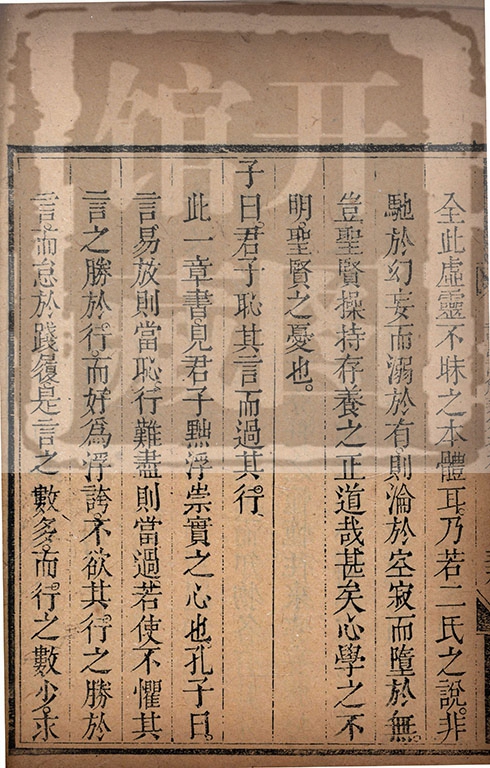 全此虛靈不昧之本體耳。乃若二氏之說。非
馳於幻妄而溺於有。則淪於空寂而墮於無。
豈聖賢操持存養之正道哉甚矣心學之不
明聖賢之憂也。
子曰。君子恥其言而過其行。
此一章書。見君子黜浮崇實之心也。孔子曰。
言易放則當恥。行難盡則當過。若使不懼其
言之勝於行。而好為浮誇。不欲其行之勝於
言。而怠於踐履。是言之數多。而行之數少。求